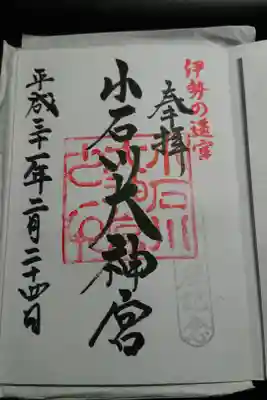 伊勢の遥宮
奉拝
小石川大神宮
平成三十一年二月二十四日